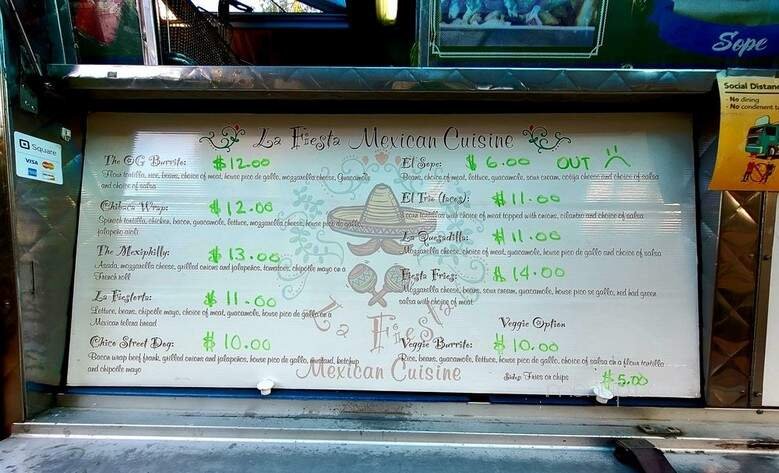 Sope
Social Distan
- No dining
- No condiment
Square
VISA
La Fiesta Mexican Cuisine
The OG Burrito: $12.00
Flour tortilla, rice, beans, choice of meat, house pico de gallo, mozzarella cheese, Guacamole
and choice of salsa
Wrap: $12.00
Spinach tortilla, chicken, bacon, guacamole, lettuce, mozzarella cheese, house pico de gallo,
jalapeño aioli
The Mexiphilly: $13.00
Asada, mozzarella cheese, grilled onions and jalapeños, tomatoes, chipotle mayo on a
French roll
La Fiestorta: $11.00
Lettuce, beans, chipotle mayo, choice of meat, guacamole, house pico de gallo on a
Mexican telera bread
Chico Street Dog: $10.00
Bacon wrap beef frank, grilled onions and jalapeños, house pico de gallo, mustard, ketchup
and chipotle mayo
El Sope: $6.00 OUT
Beans, choice of meat, lettuce, guacamole, sour cream, cotija cheese and choice of salsa
El Trio (tacos): $11.00
corn tortillas with choice of meat topped with onions, cilantro and choice of salsa
La Quesadilla: $11.00
Mozzarella cheese, choice of meat, guacamole, house pico de gallo and choice of salsa
Fiesta Fries: $14.00
Mozzarella cheese, beans, sour cream, guacamole, house pico se gallo, red hard green
salsa with choice of meat
Veggie Option
Veggie Burrito: $10.00
Rice, beans, guacamole, lettuce, house pico de gallo, choice of salsa on a flour tortilla
Side: Fries or chips $5.00
La Fiesta
Mexican Cuisine